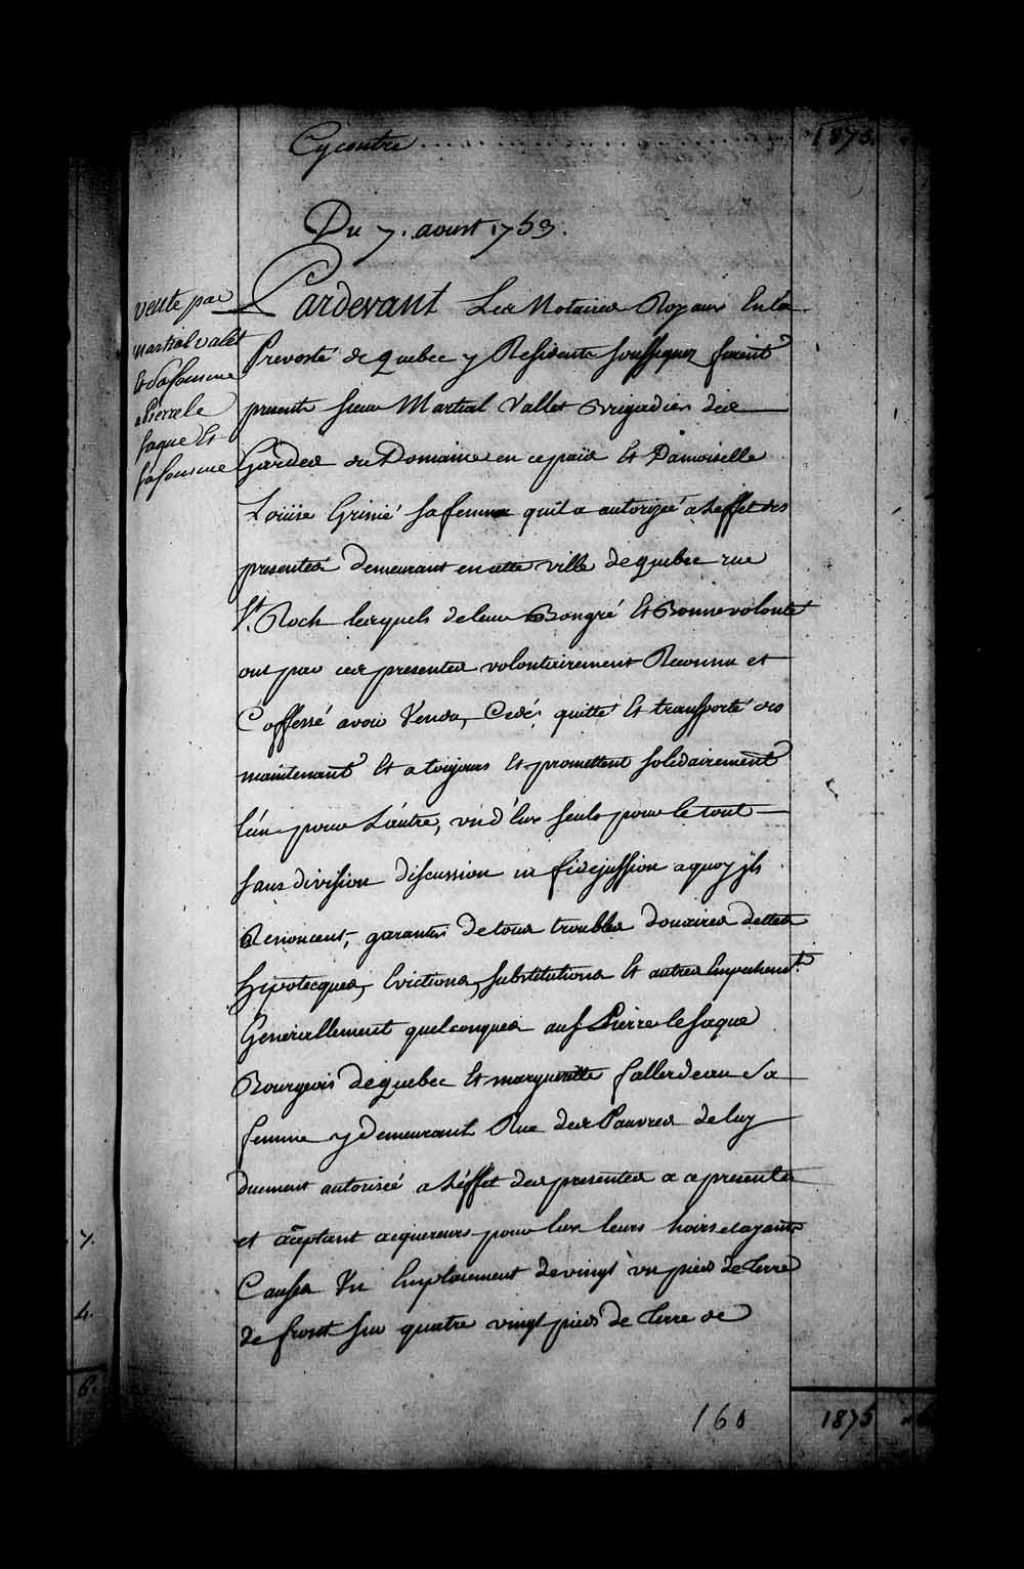 Cycontre . . . . . . . . . . . . . . . . . 1875.
Du 7. aoust 1753.
vente par
martial valet
Et sa femme
a Pierre le
faque Et
sa femme
Pardevant Les Notaires Royaux En la
Prevosté de quebec y Residents soussignez furent
presents sieur Martial Vallet Brigadier des
Gardes du Domaine en ce païs Et Damoiselle
Loüise Grinié sa femme quil a autorizée a Leffet des
presentes demeurant en cette ville de quebec rue
St. Roch lesquels de leur Bongré Et Bonne volonté
ont par ces presentes volontairement Reconnu et
Coffessé avoir Vendu, Cedé, quitté Et transporté des
maintenant Et a toujours Et promettent solidairement
l'un pour L'autre, un d'Eux seuls pour le tout
sans division discussion ni fidejussion a quoy jls
Renoncent, garantir de tous troubles douaires dettes
hipotecques, Evictions, substitutions Et autres Empechemts.
Generallement quelconques au s. Pierre le faque
Bourgeois de quebec Et margueritte fallerdeau Sa
femme y demeurant Rue des Pauvres de luy
duement autorisée a L'effet des presentes a ce presents
et acceptant acquereurs pour Eux leurs hoirs et ayants
Causes Un Emplacement de vingt un pieds de terre
de front sur quatre vingt pieds de terre de
7.
4.
6.
160
1875